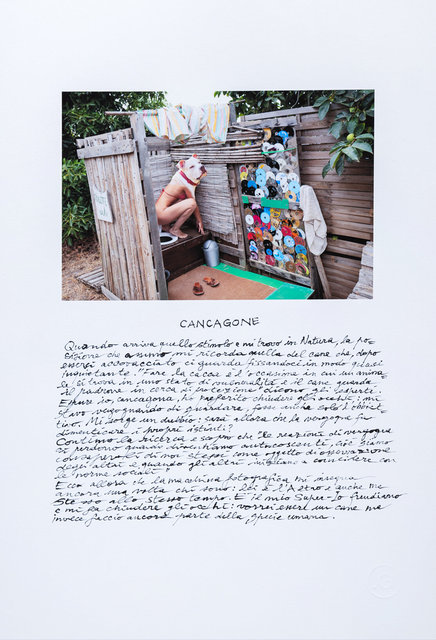 CANCAGONE
Quando arriva quello stimolo e mi trovo in Natura, la po-
sizione che assumo mi ricorda quella del cane che, dopo
essersi accovacciato ci guarda fissandoci in modo quasi
"Fare la cacca è l'occasione in cui un anima-
le si trova in uno stato di vulnerabilità e il cane guarda
il padrone in cerca di protezione" dicono gli esperti.
Eppure io, cancagone, ho preferito chiudere gli occhi: mi
stavo vergognando di guardare, fosse anche solo l'obiet-
tivo. Mi sorge un dubbio: sarà allora che la vergogna fa
dimenticare i propri istinti?
Continuo la ricerca e scopro che "le reazioni di vergogna
si perdono quando diventiamo autocoscienti, cioè siamo
consapevoli di noi stessi come oggetto di osservazione
degli altri e quando gli altri a coincidere con
le norme sociali".
Ecco allora che la macchina fotografica mi insegna
ancora una volta chi sono: lei è l'Altro e anche me
stesso allo stesso tempo. È il mio Super-Io freudiano
e mi fa chiudere gli occhi: vorrei essere un cane ma
invece faccio ancora parte della specie umana.